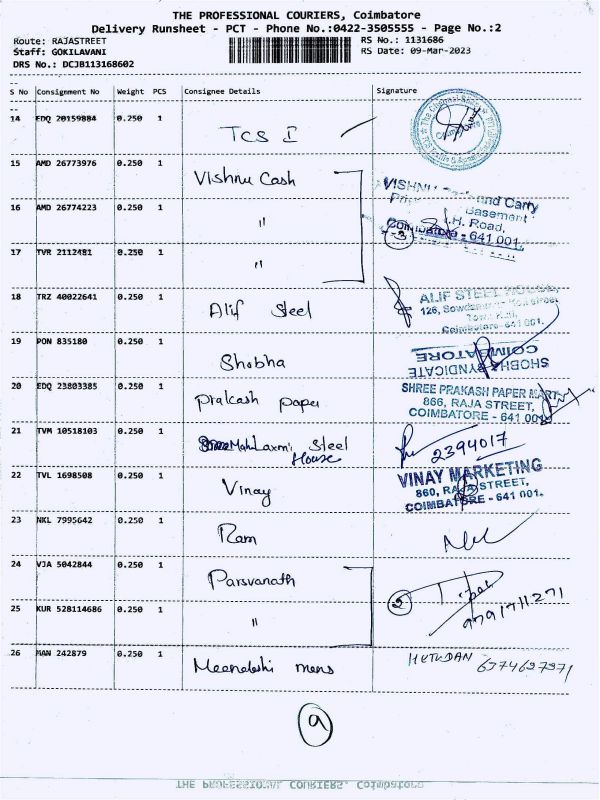 THE PROFESSIONAL COURIERS, Coimbatore
Delivery Runsheet - PCT - Phone No.:0422-3505555 - Page No.:2
Route: RAJASTREET
Staff: GOKILAVANI
DRS No.: DCJB113168602
RS No.: 1131686
RS Date: 09-Mar-2023
S No Consignment No Weight PCS Consignee Details Signature
14 EDQ 20159884 0.250 1 TCS I
15 AMD 26773976 0.250 1 Vishnu Cash
VISHNU and Carry
Basement
16 AMD 26774223 0.250 1 "
3 H. Road,
Coimbatore - 641 001.
17 TVR 2112481 0.250 1 "
18 TRZ 40022641 0.250 1 Alif Steel
ALIF STEEL HOUSE,
126,
Town Hall,
Coimbatore-641 001.
19 PON 835180 0.250 1 Shobha
SHOBHA SYNDICATE
COIMBATORE
20 EDQ 23803385 0.250 1 prakash paper
SHREE PRAKASH PAPER MART
866, RAJA STREET,
COIMBATORE - 641 001
21 TVM 10518103 0.250 1 Mahalaxmi Steel House
2394017
22 TVL 1698508 0.250 1 Vinay
VINAY MARKETING
860, RAJA STREET,
COIMBATORE - 641 001.
23 NKL 7995642 0.250 1 Ram
24 VJA 5042844 0.250 1 Parsvanath
2
9791711271
25 KUR 528114686 0.250 1 "
26 MAN 242879 0.250 1 Meenakshi mens
6374697971
9
THE PROFESSIONAL COURIERS, Coimbatore